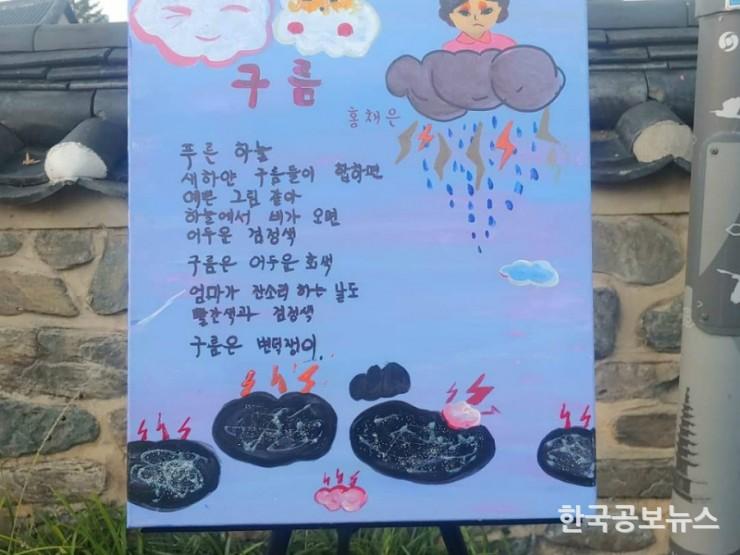 구름
홍채은
푸른 하늘
새하얀 구름들이 합하면
예쁜 그림 같아
하늘에서 비가 오면
어두운 검정색
구름은 어두운 회색
엄마가 잔소리 하는 날도
빨간색과 검정색
구름은 변덕쟁이.
한국공보뉴스